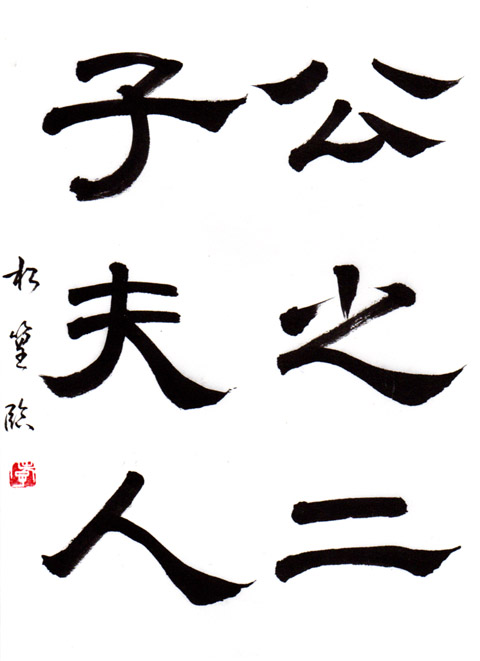 公之二
子夫人
松篁臨